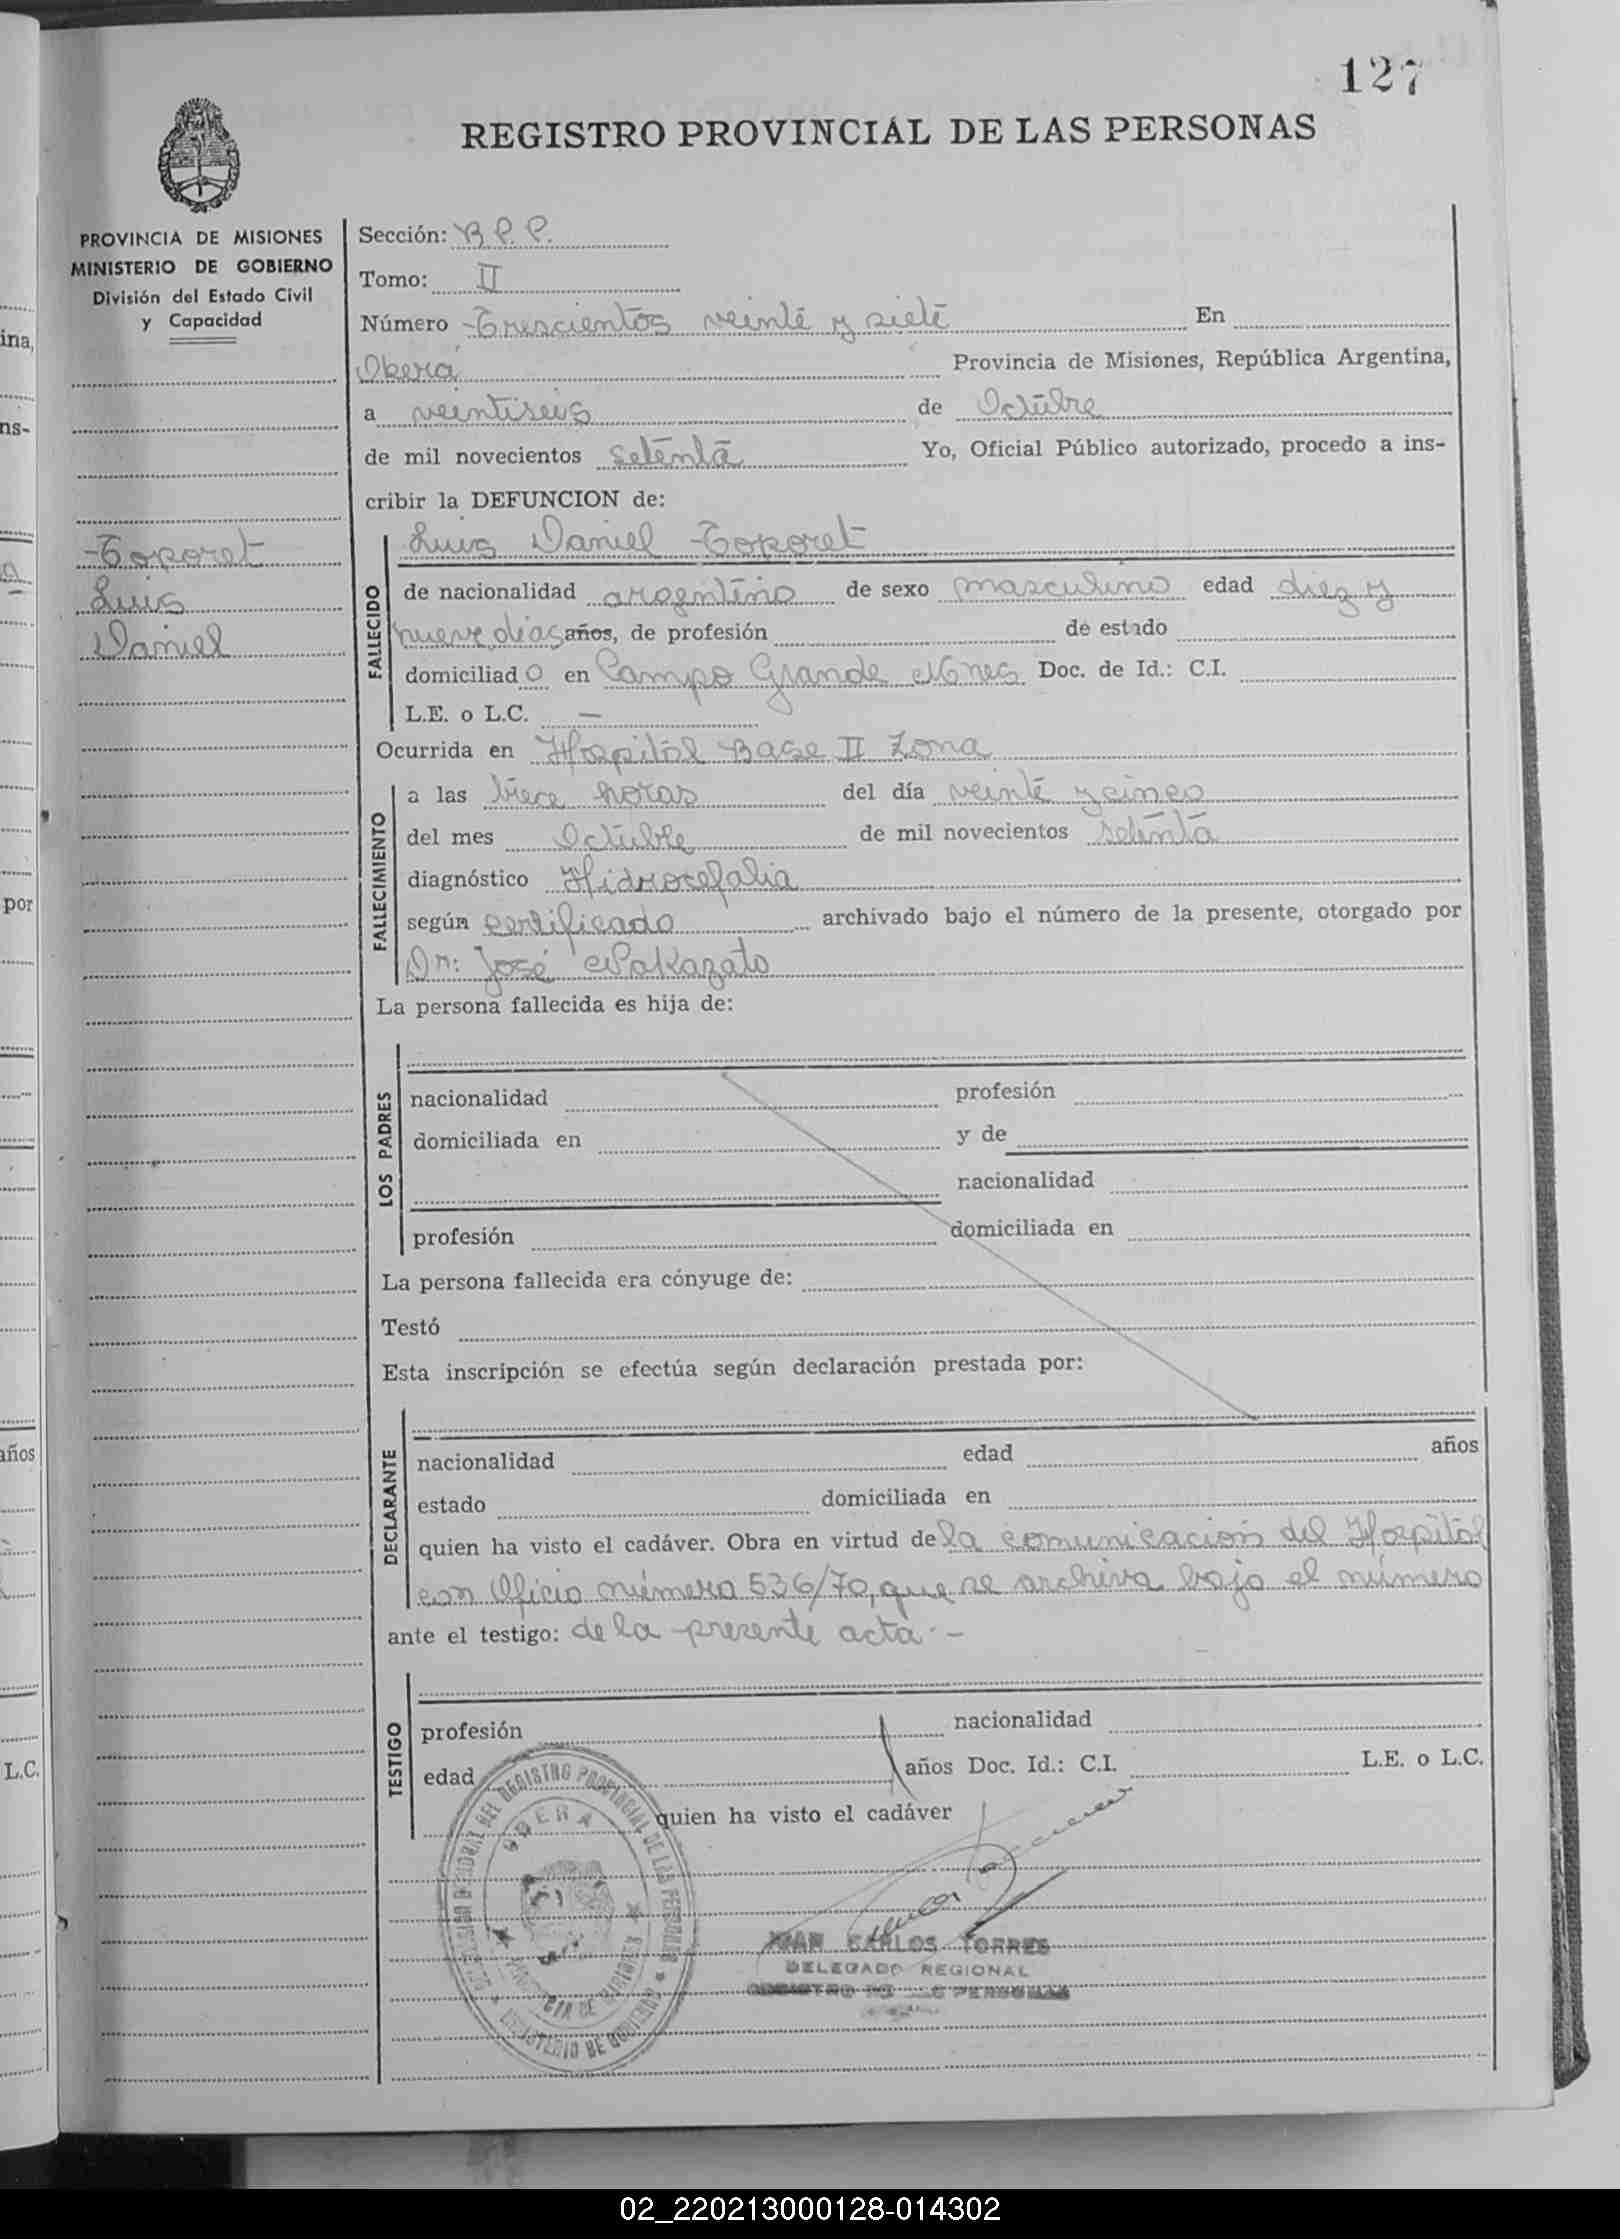 127
REGISTRO PROVINCIAL DE LAS PERSONAS
PROVINCIA DE MISIONES
MINISTERIO DE GOBIERNO
División del Estado Civil
y Capacidad
Toporet
Luis
Daniel
Sección: B.P.P.
Tomo: II
Número Trescientos veinte y siete En
Oberá Provincia de Misiones, República Argentina,
a veintiseis de Octubre
de mil novecientos setenta Yo, Oficial Público autorizado, procedo a ins-
cribir la DEFUNCION de:
FALLECIDO
Luis Daniel Toporet
de nacionalidad argentino de sexo masculino edad diez y
nueve dias años, de profesión de estado
domiciliado en Campo Grande Mnes Doc. de Id.: C.I.
L.E. o L.C. —
Ocurrida en Hospital Base II Zona
FALLECIMIENTO
a las trece horas del día veinte y cinco
del mes Octubre de mil novecientos setenta
diagnóstico Hidrocefalia
según certificado archivado bajo el número de la presente, otorgado por
Dr: José Nakazato
La persona fallecida es hija de:
LOS PADRES
nacionalidad profesión
domiciliada en y de
nacionalidad
profesión domiciliada en
La persona fallecida era cónyuge de:
Testó
Esta inscripción se efectúa según declaración prestada por:
DECLARANTE
nacionalidad edad años
estado domiciliada en
quien ha visto el cadáver. Obra en virtud de la comunicación del Hospital
con Oficio número 536/70, que se archiva bajo el número
ante el testigo: de la presente acta.-
TESTIGO
profesión nacionalidad
edad años Doc. Id.: C.I. L.E. o L.C.
quien ha visto el cadáver
DEL REGISTRO PROVINCIAL DE LAS PERSONAS
OBERA
PROVINCIA DE MISIONES
MINISTERIO DE GOBIERNO
JUAN CARLOS TORRES
DELEGADO REGIONAL
REGISTRO DE LAS PERSONAS
ina,
ns-
por
años
L.C.
02_220213000128-014302